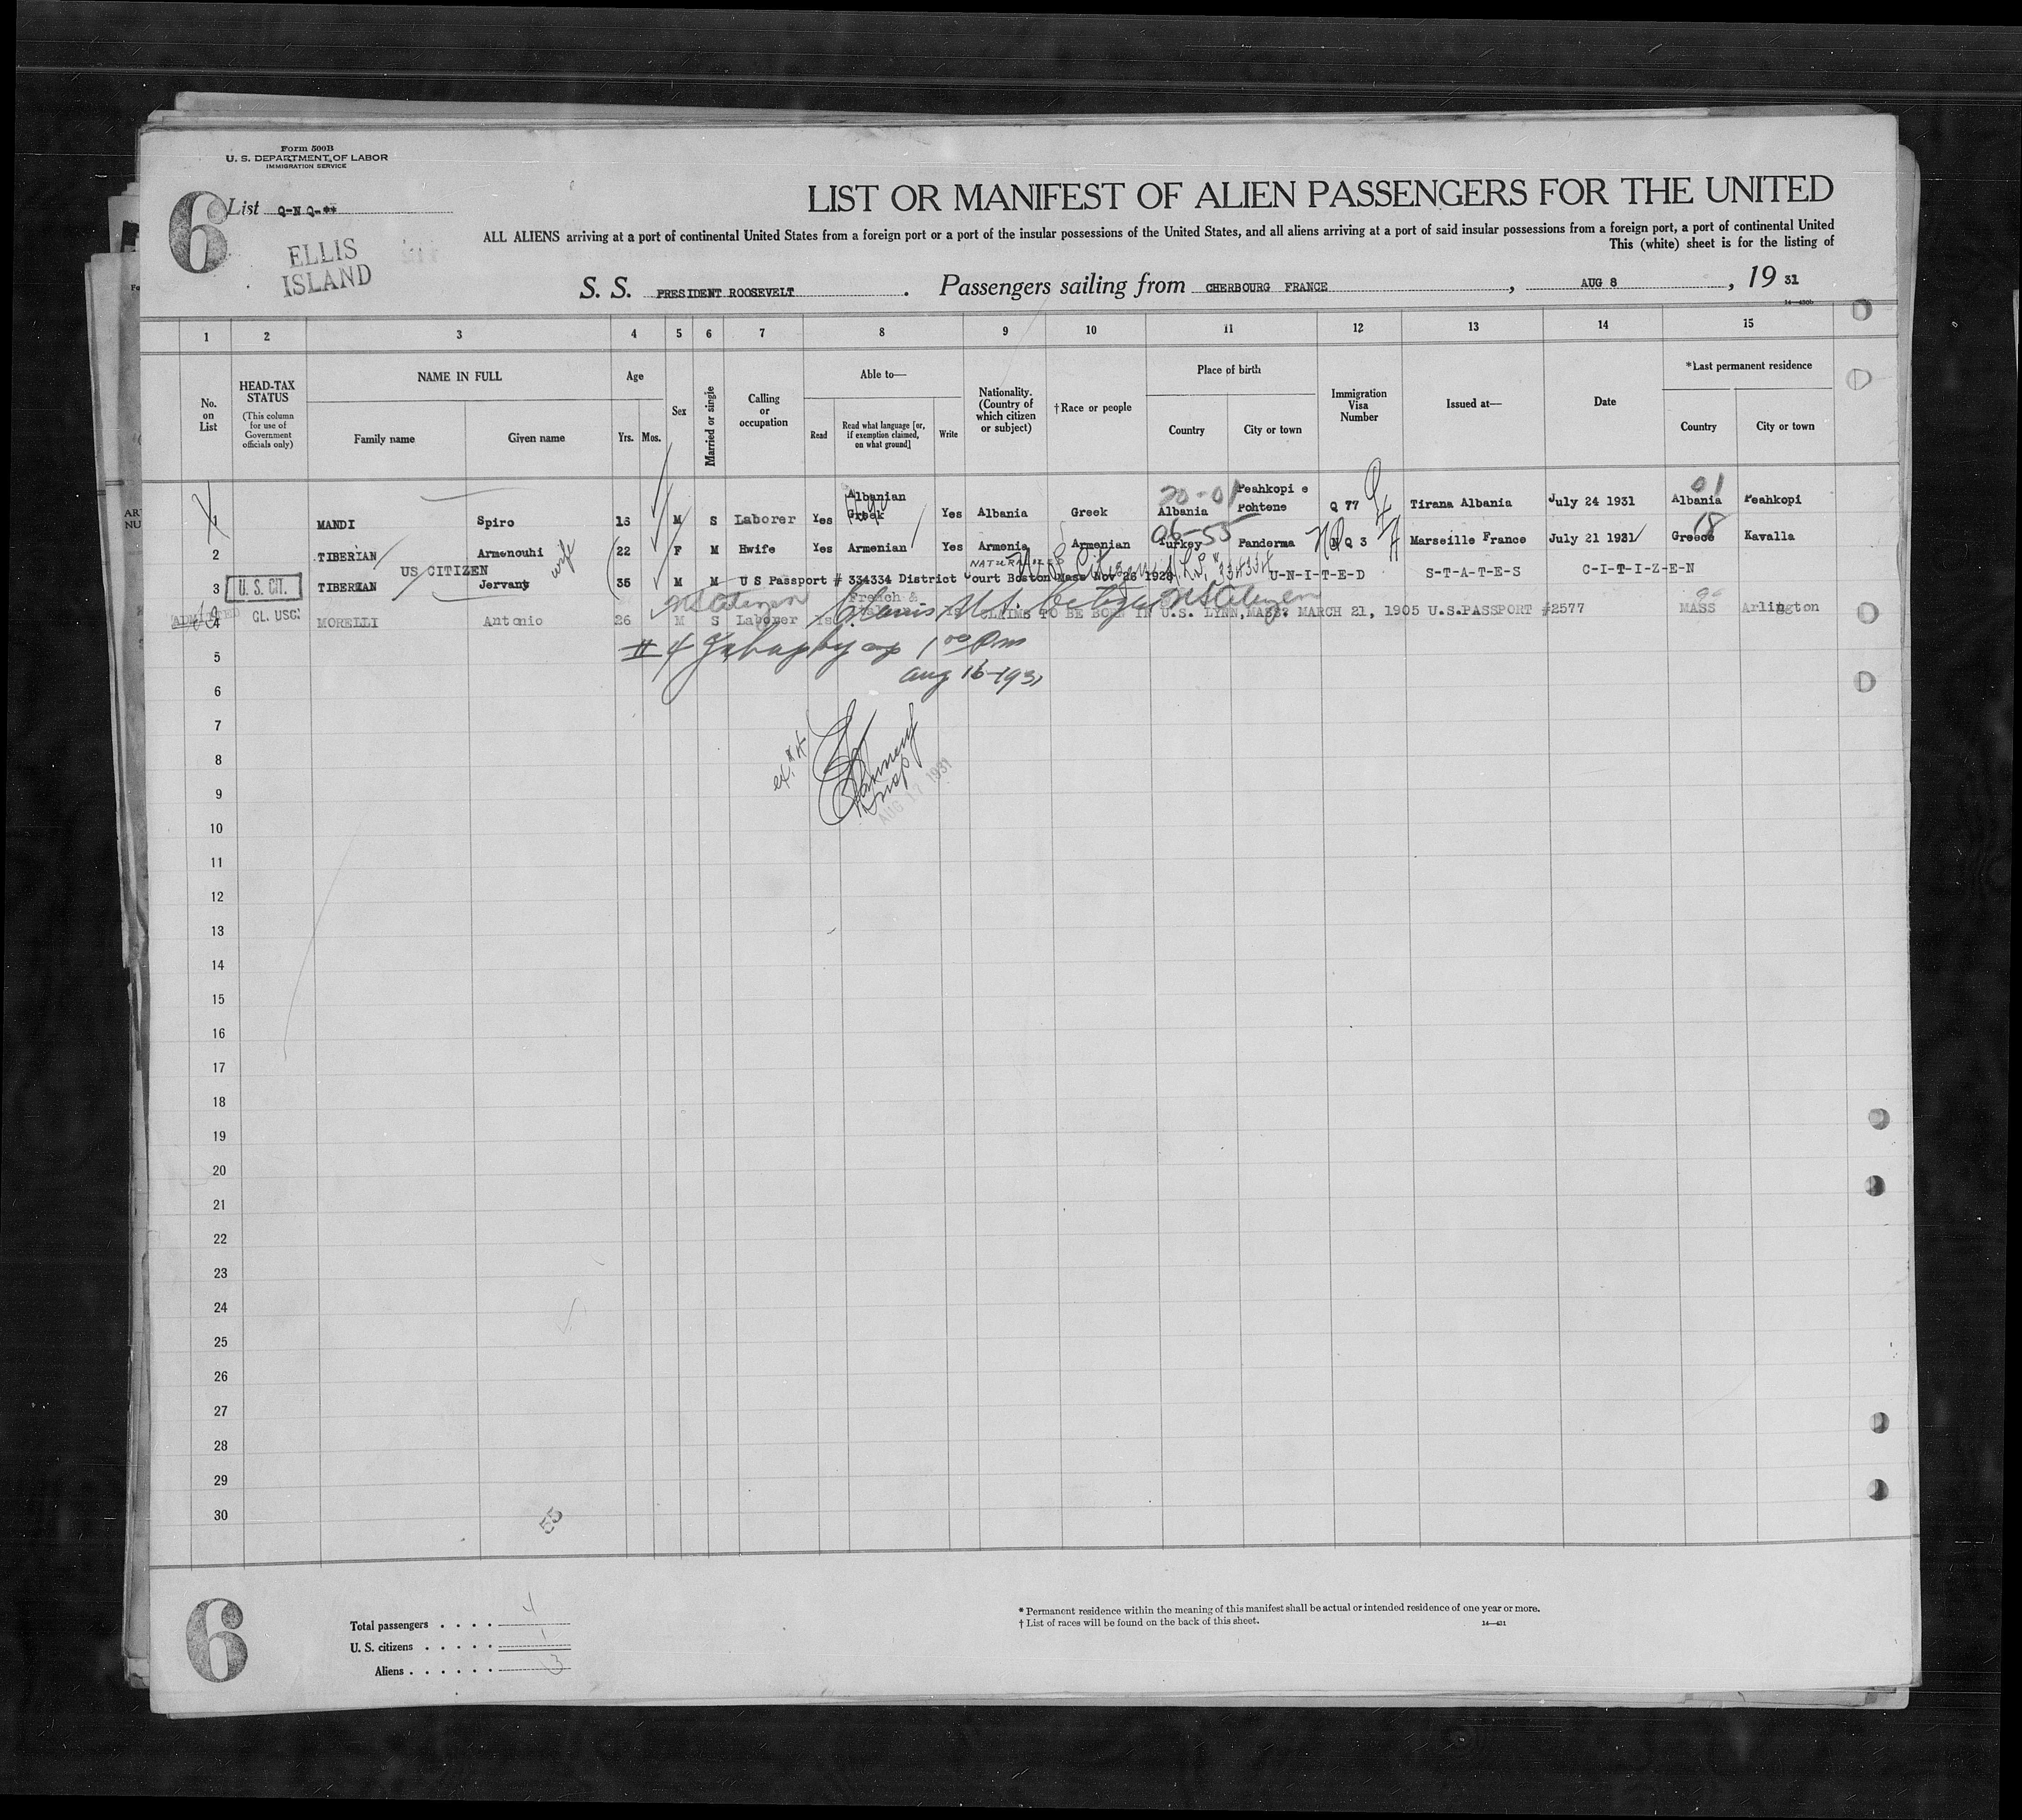 Form 500B
U. S. DEPARTMENT OF LABOR
IMMIGRATION SERVICE
6
List Q-N Q-**
ELLIS
ISLAND
LIST OR MANIFEST OF ALIEN PASSENGERS FOR THE UNITED
ALL ALIENS arriving at a port of continental United States from a foreign port or a port of the insular possessions of the United States, and all aliens arriving at a port of said insular possessions from a foreign port, a port of continental United
This (white) sheet is for the listing of
S. S. PRESIDENT ROOSEVELT . Passengers sailing from CHERBOURG FRANCE , AUG 8 , 19 31
14—430b
1 2 3 4 5 6 7 8 9 10 11 12 13 14 15
No. on List
HEAD-TAX STATUS
(This column for use of Government officials only)
NAME IN FULL
Family name Given name
Age
Yrs. Mos.
Sex
Married or single
Calling or occupation
Able to—
Read Read what language [or, if exemption claimed, on what ground] Write
Nationality. (Country of which citizen or subject)
†Race or people
Place of birth
Country City or town
Immigration Visa Number
Issued at—
Date
*Last permanent residence
Country City or town
1 MANDI Spiro 16 M S Laborer Yes Albanian Greek Yes Albania Greek 20-01 Albania Peahkopi e Pohtene Q 77 Tirana Albania July 24 1931 01 Albania Peahkopi
2 TIBERIAN Armenouhi wife 22 F M Hwife Yes Armenian Yes Armenia Armenian 06-55 Turkey Panderma NQ 3 Marseille France July 21 1931 18 Greece Kavalla
US CITIZEN
NATURALIZED
3 U. S. CIT. TIBERIAN Jervant 35 M M U S Passport # 334334 District Court Boston Mass Nov 26 1928 U-N-I-T-E-D S-T-A-T-E-S C-I-T-I-Z-E-N
U.S. Citizen
334334
US Citizen Claims U.S. Citizen US Citizen
ADMITTED
4 CL. USC. MORELLI Antonio 26 M S Laborer Yes French & Yes CLAIMS TO BE BORN IN U.S. LYNN, MASS. MARCH 21, 1905 U.S.PASSPORT #2577 99 MASS Arlington
5 #4 1 00 Pm
Aug 16-1931
6
7
8
AUG 17 1931
9
10
11
12
13
14
15
16
17
18
19
20
21
22
23
24
25
26
27
28
29
30
55
6
Total passengers . . . . 4
U. S. citizens . . . . . 1
Aliens . . . . . . 3
* Permanent residence within the meaning of this manifest shall be actual or intended residence of one year or more.
† List of races will be found on the back of this sheet.
14—431